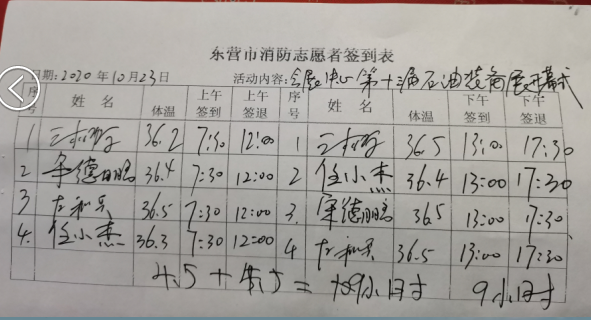 东营市消防志愿者签到表
日期:2020年10月23日 活动内容:会展中心第十三届石油装备展开幕式
序号 姓名 体温 上午签到 上午签退 序号 姓名 体温 下午签到 下午签退
1 36.2 7:30 12:00 1 36.5 13:00 17:30
2 德鹏 36.4 7:30 12:00 2 任小杰 36.4 13:00 17:30
3 36.5 7:30 12:00 3. 德鹏 36.5 13:00 17:30
4. 任小杰 36.3 7:30 12:00 4 36.5 13:00 17:30
4.5+4.5= 9小时 9小时